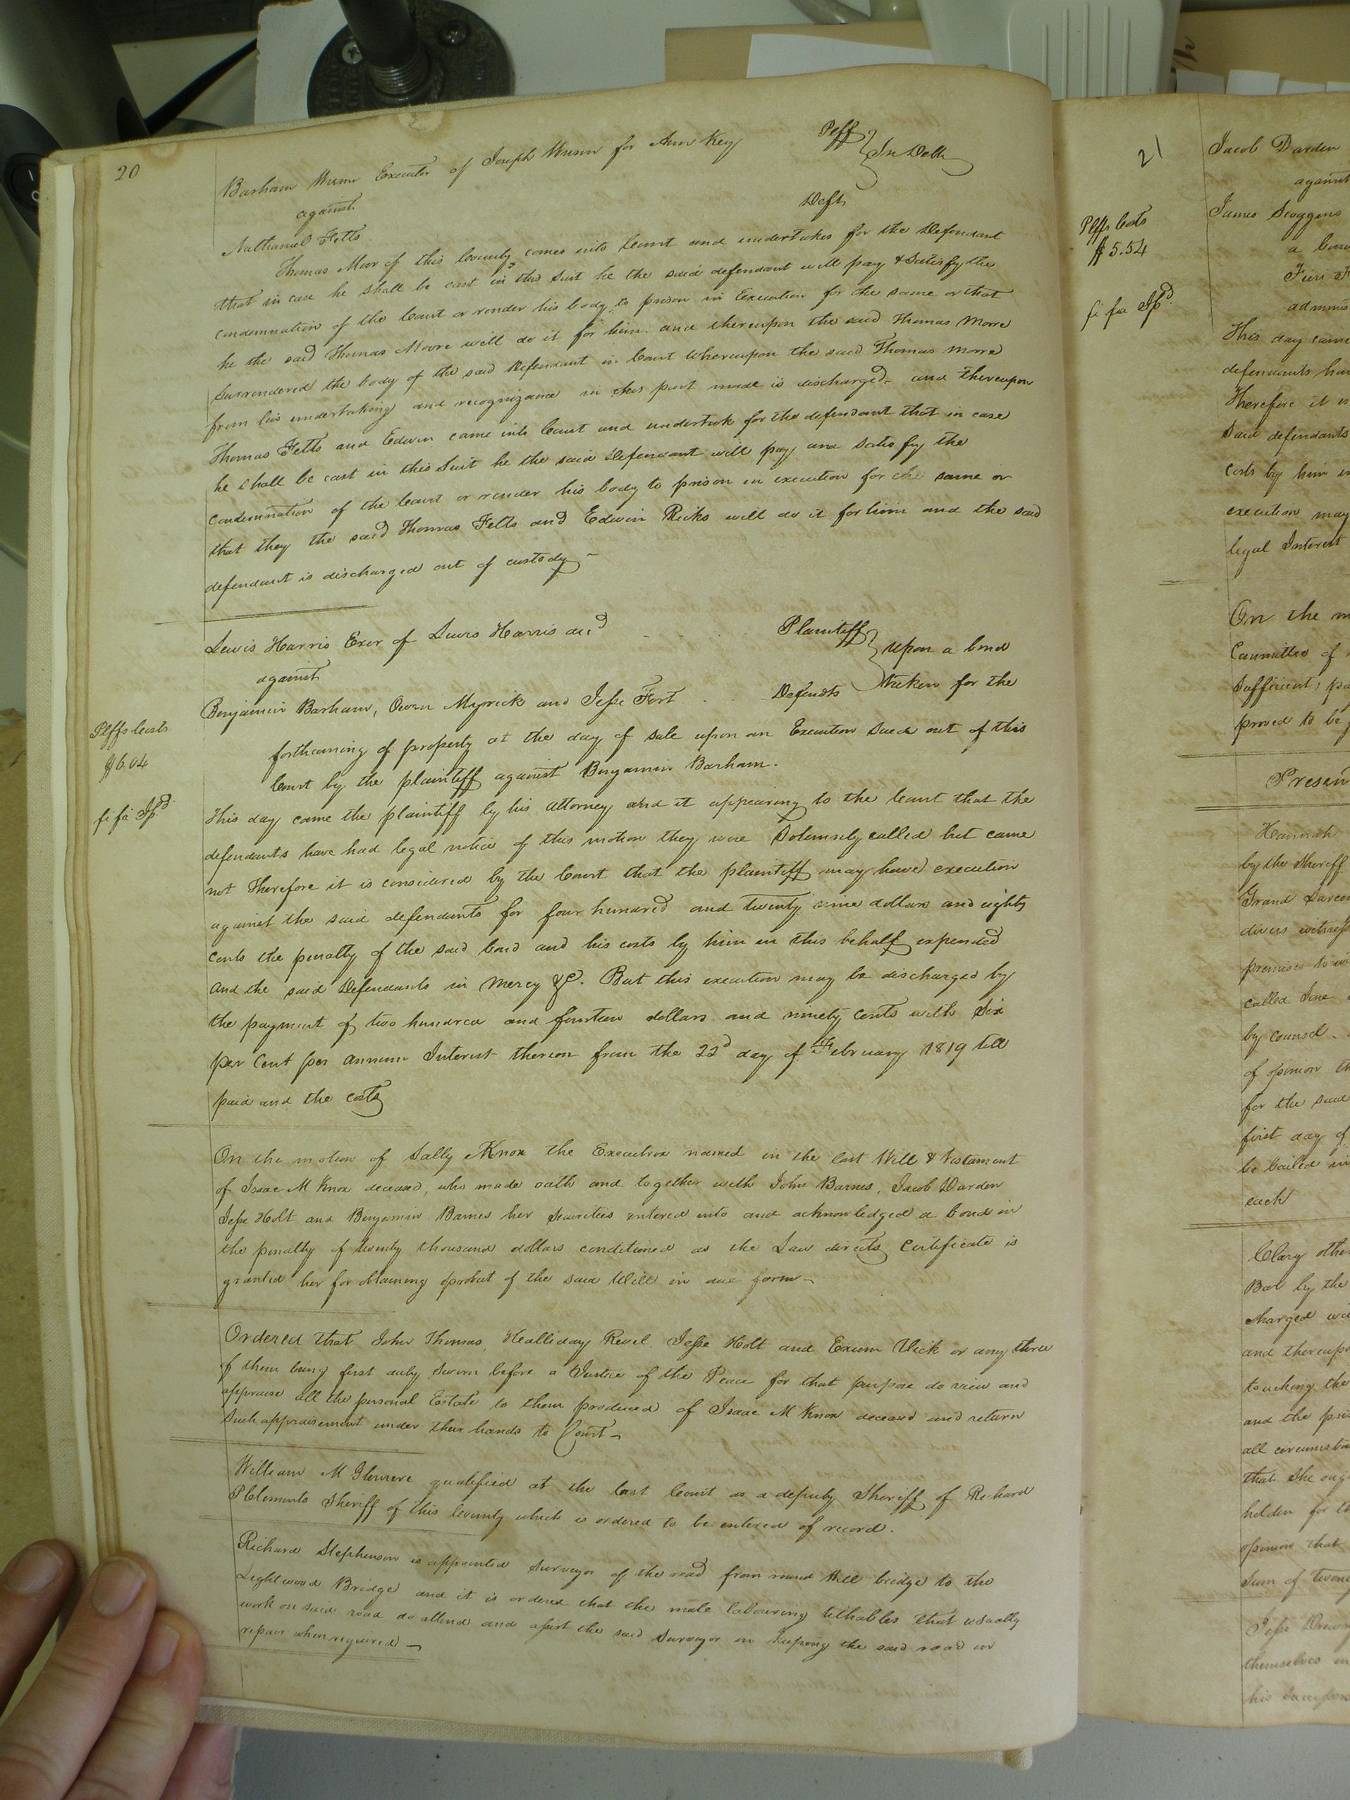 20
Barham Wrenn Executor of Joseph Wrenn for Ann Key Plff
In Debt
against
Nathaniel Felts Deft
Thomas Moor of this County comes into Court and undertakes for the Defendant
that in case he shall be cast in this Suit he the said defendant will pay & Satisfy the
condemnation of the Court or render his body to prison in Execution for the same or that
he the said Thomas Moore will do it for him and thereupon the said Thomas Moore
surrendered the body of the said Defendant in Court whereupon the said Thomas Moore
from his undertaking and recognizance in this part made is discharged. and thereupon
Thomas Felts and Edwin came into Court and undertook for the defendant that in case
he shall be cast in this Suit he the said Defendant will pay and Satisfy the
condemnation of the Court or render his body to prison in execution for the same or
that they the said Thomas Felts and Edwin Ricks will do it for him and the said
defendant is discharged out of custody —
Lewis Harris Exor of Lewis Harris decd Plaintiff
upon a bond
against
taken for the
Benjamin Barham, Owen Myrick and Jesse Fort Defendts
Plffs Costs
$6.04
fi fa Isd
forthcoming of property at the day of sale upon an Execution sued out of this
Court by the plaintiff against Benjamin Barham.
This day came the plaintiff by his attorney and it appearing to the Court that the
defendants have had legal notice of this motion they were Solemnly called but came
not Therefore it is considered by the Court that the plaintiff may have execution
against the said defendants for four hundred and twenty nine dollars and eighty
cents the penalty of the said bond and his costs by him in this behalf expended
and the said Defendants in Mercy &c. But this execution may be discharged by
the payment of two hundred and fourteen dollars and ninety cents with Six
per Cent per annum Interest thereon from the 22d day of February 1819 till
paid and the costs
On the motion of Sally M Knox the Executrix named in the last Will & testament
of Isaac M Knox deceased, who made oath and together with John Barnes, Jacob Darden
Jesse Holt and Benjamin Barnes her Securities entered into and acknowledged a bond in
the penalty of twenty thousand dollars conditioned as the Law directs Certificate is
granted her for obtaining probat of the said Will in due form —
Ordered that John Thomas, Healliday Revel, Jesse Holt and Exum Vick or any three
of them being first duly Sworn before a Justice of the Peace for that purpose do view and
appraise all the personal Estate to them produced of Isaac M Knox deceased and return
Such appraisement under their hands to Court —
William M qualified at the last Court as a deputy Sheriff of Richard
P Clements Sheriff of this County which is ordered to be entered of record.
Richard Stephenson is appointed Surveyor of the road from round Hill bridge to the
Lightwood Bridge and it is ordered that the male labouring tithables that usually
work on said road do attend and assist the said Surveyor in keeping the said road in
repair when required —
21
Jacob Darden
against
James Scoggens
Plffs Costs
$5.54
fi fa Isd
adminis
This day came
defendants have
Therefore it is
Said defendants
costs by him in
execution may
legal Interest
On the m
Committee of
Sufficient; pa
proved to be
Present
Hannah
by the Sheriff
Grand Larcen
divers witness
premises to w
called Jane
by counsel
of opinion th
for the said
first day of
be bailed in
each
Clary othe
Bar by the
charged wi
and thereup
touching the
and the pris
all circumsta
that She oug
holden for th
opinion that
Sum of twen
Jesse Drewry
themselves in
his